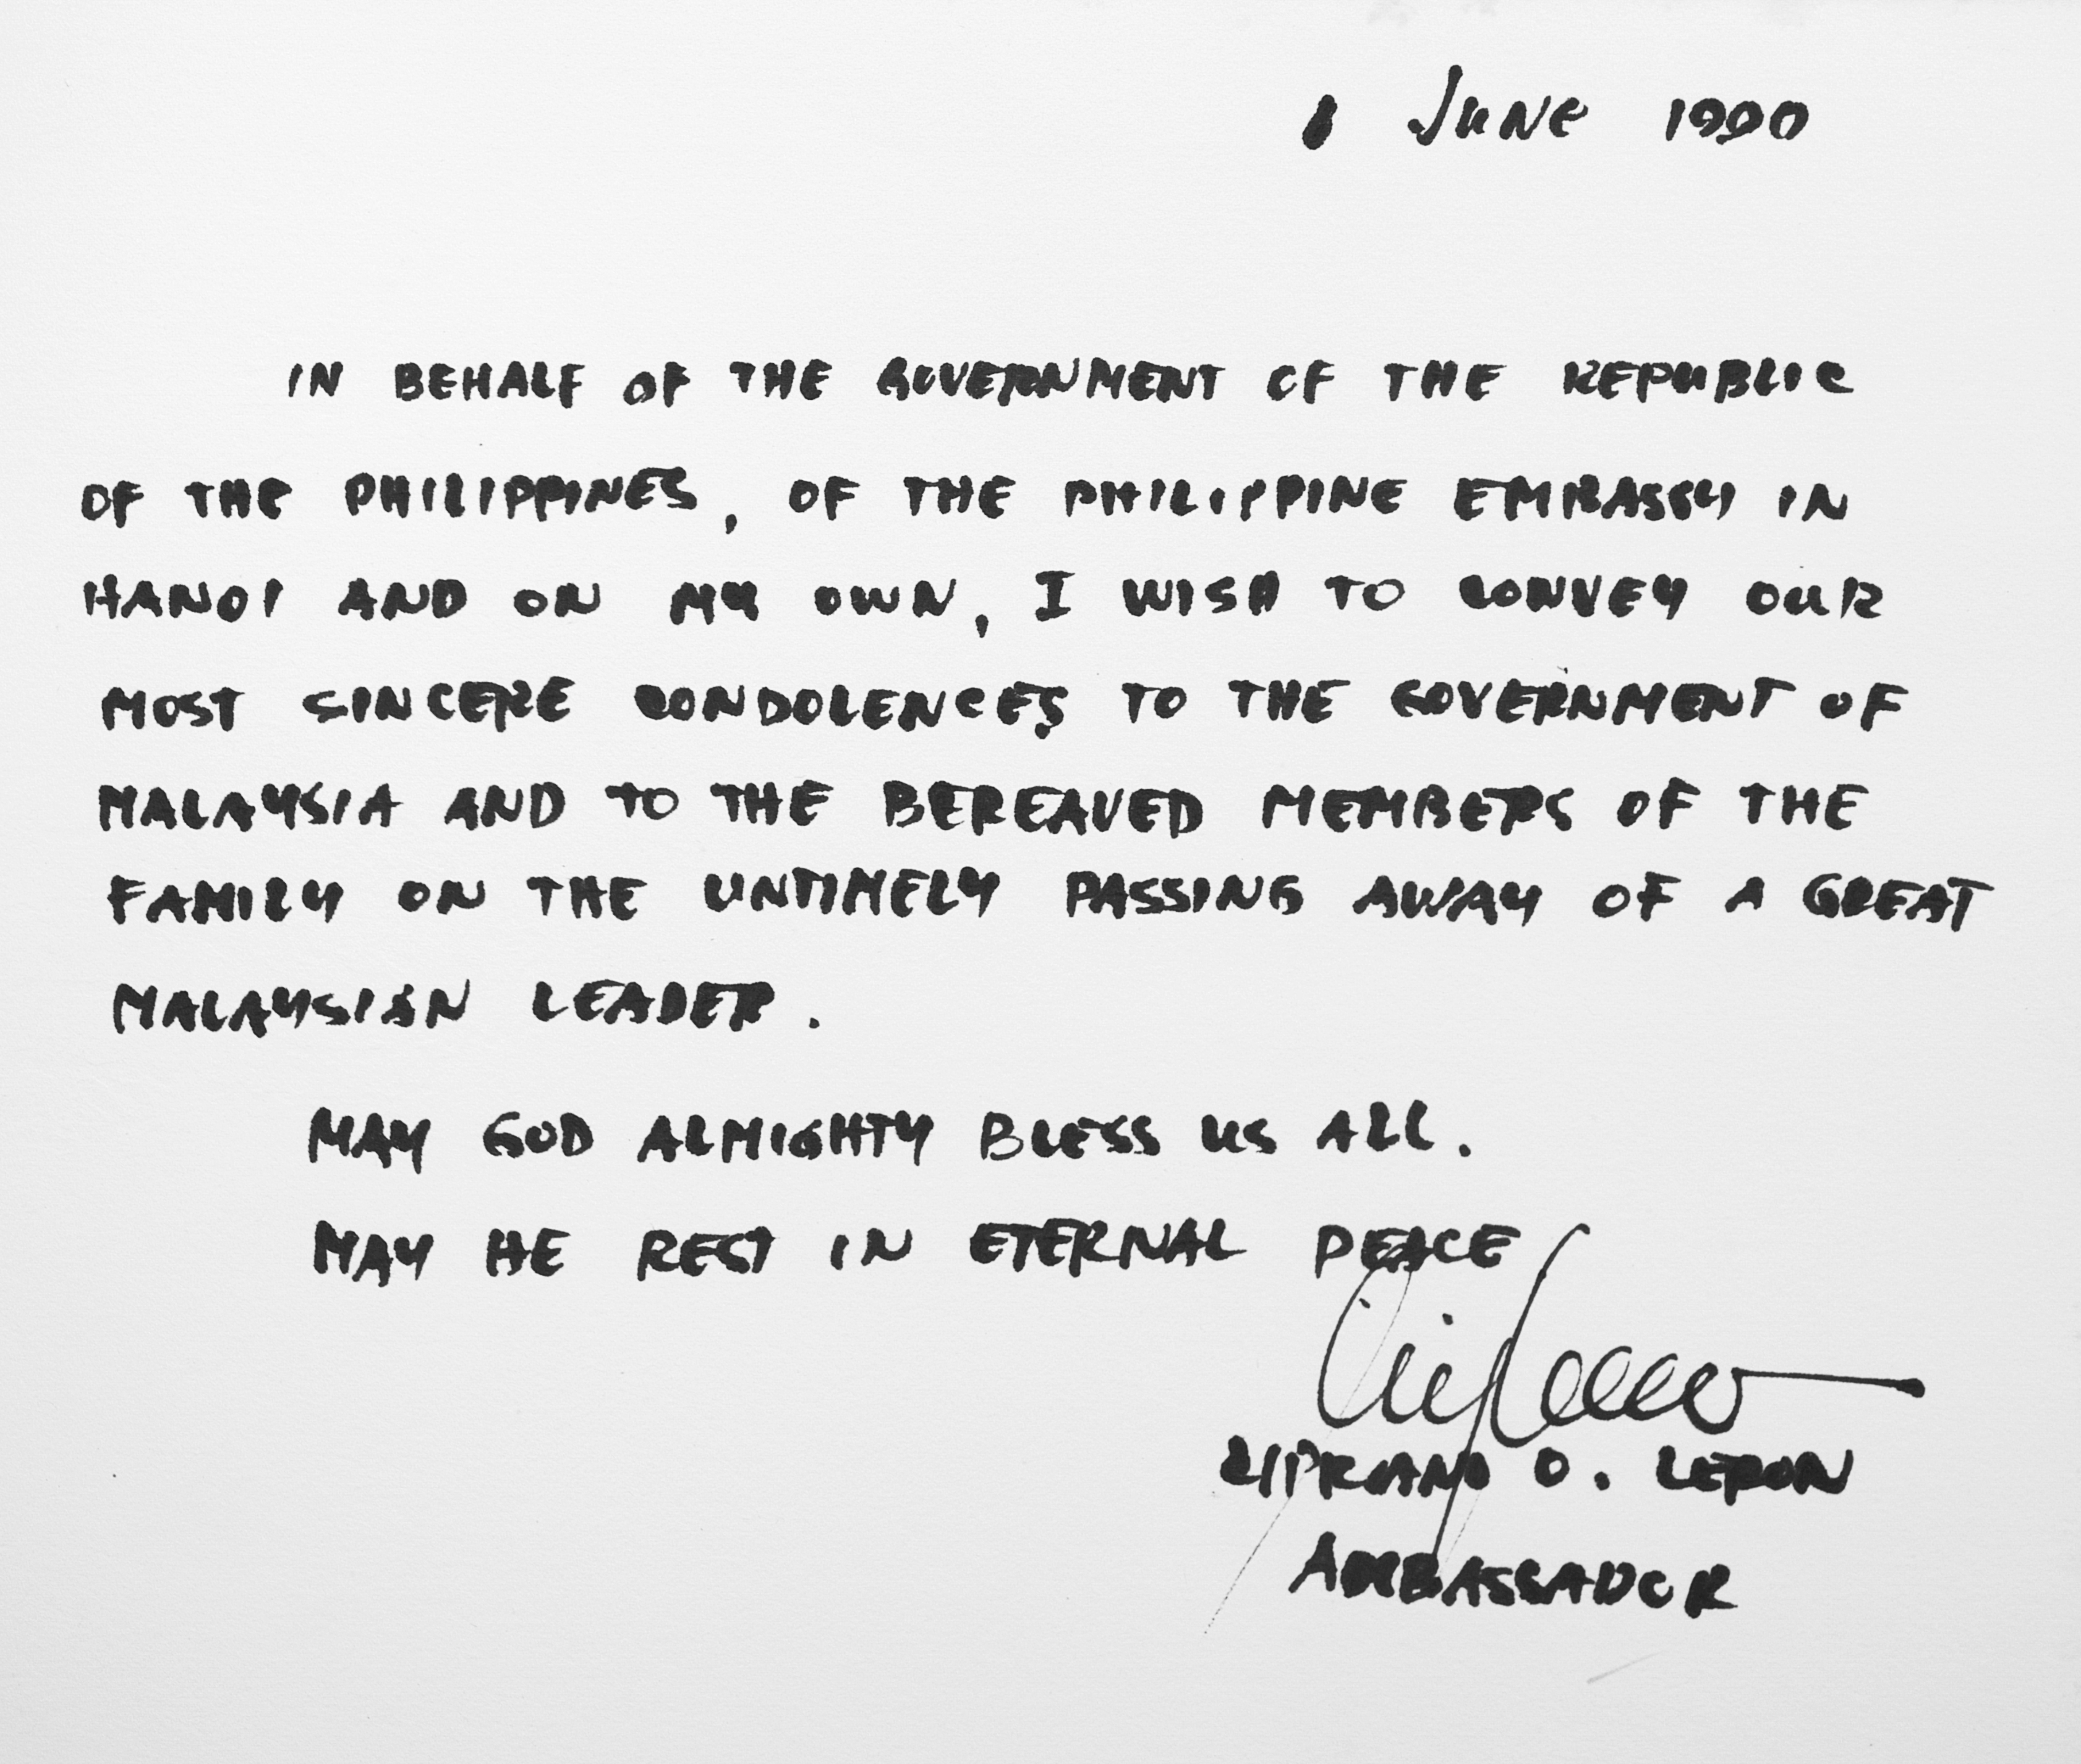 June 1990
IN BEHALF OF THE GOVERNMENT OF THE REPUBLIC
OF THE PHILIPPINES, OF THE PHILIPPINE EMBASSY IN
HANOI AND ON MY OWN, I WISH TO CONVEY OUR
MOST SINCERE CONDOLENCES TO THE GOVERNMENT OF
MALAYSIA AND TO THE BEREAVED MEMBERS OF THE
FAMILY ON THE UNTIMELY PASSING AWAY OF A GREAT
MALAYSIAN LEADER.
MAY GOD ALMIGHTY BLESS US ALL.
MAY HE REST IN ETERNAL PEACE
CIPRIANO O. LERON
AMBASSADOR